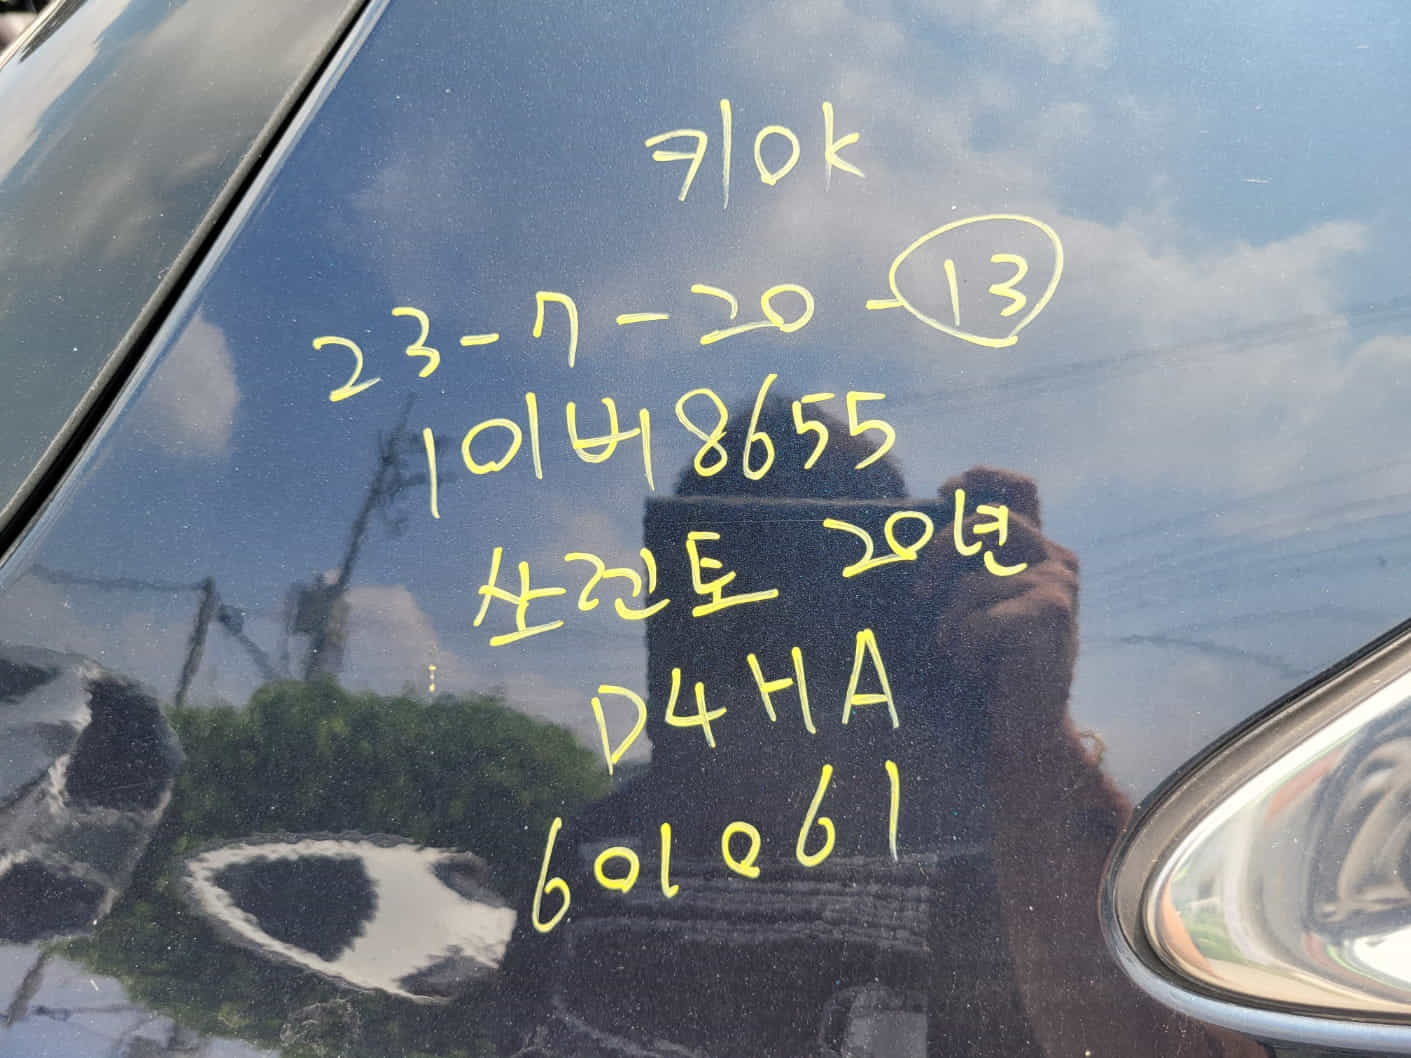 키OK
23-7-20-13
101버8655
쏘렌토 20년
D4HA
601061